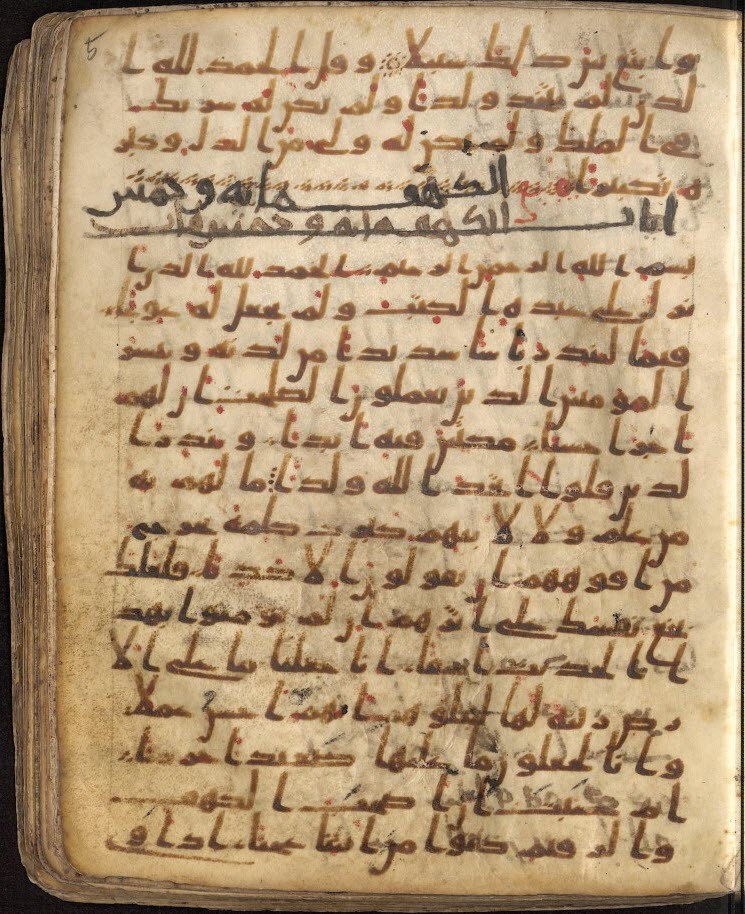 5
وابتغ بين ذلك سبيلا وقل الحمد لله ا
لذي لم يتخذ ولدا ولم يكن له شريك
في الملك ولم يكن له ولي من الذل وكبر
ه تكبيرا
الكهف مائه وخمس
ايات الكهف مائه وخمس ايات
بسم الله الرحمن الرحيم الحمد لله الذي ا
نزل على عبده الكتب ولم يجعل له عوجا
قيما لينذر باسا شديدا من لدنه ويبشر
المومنين الذين يعملون الصلحت ان لهم
اجرا حسنا مكثين فيه ابدا وينذر ا
لذين قلوا اتخذ الله ولدا ما لهم به
من علم ولا لا بيهم كبرت كلمة تخرج
من افوههم ان يقولون الا كذبا فلعلك
بخع نفسك على اثرهم ان لم يومنوا بهذ
ا الحديث اسفا انا جعلنا ما على الا
رض زينة لها لنبلوهم ايهم احسن عملا
وانا لجعلون ما عليها صعيدا جرزا
ام حسبت ان اصحب الكهف
والرقيم كانوا من ايتنا عجبا اذ ا و